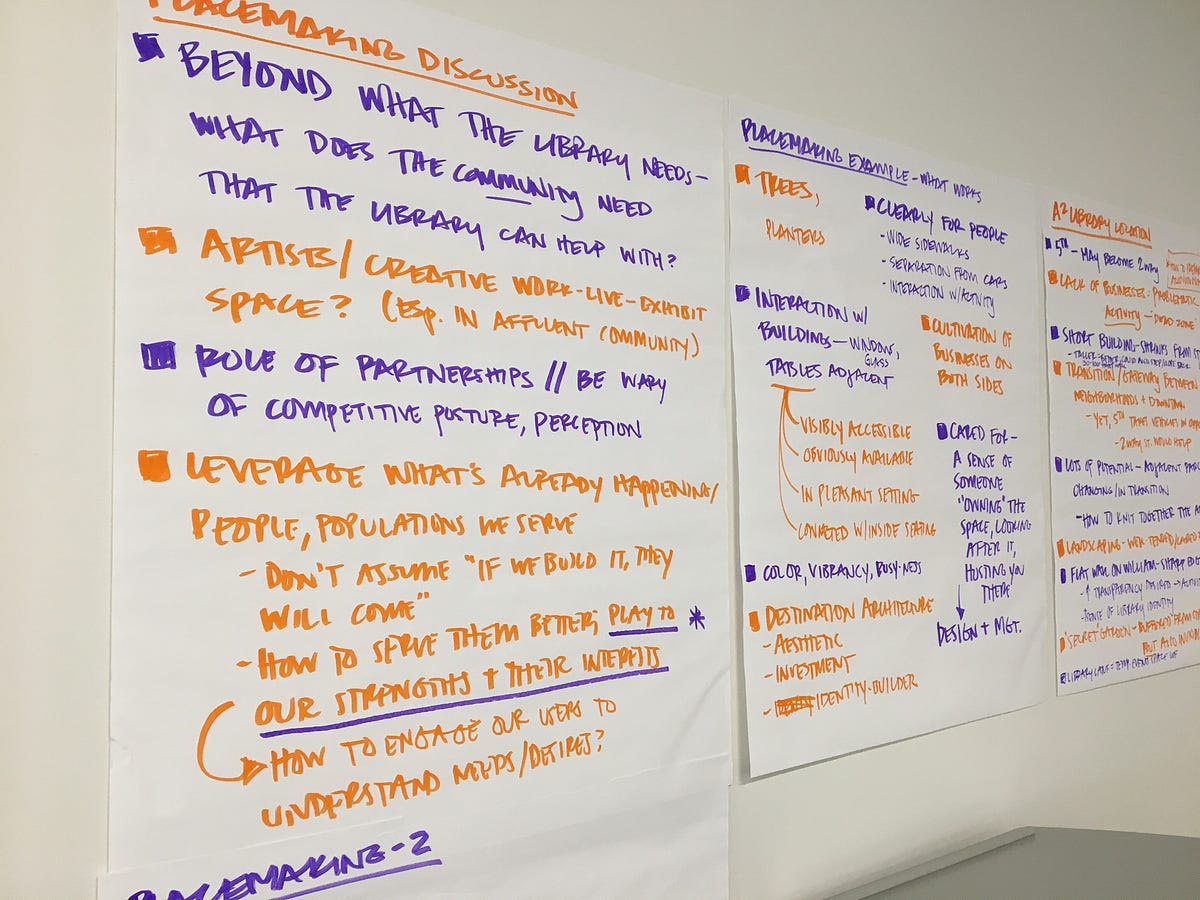 PLACEMAKING DISCUSSION
BEYOND WHAT THE LIBRARY NEEDS-
WHAT DOES THE COMMUNITY NEED
THAT THE LIBRARY CAN HELP WITH?
ARTISTS/ CREATIVE WORK-LIVE-EXHIBIT
SPACE? (ESP. IN AFFLUENT COMMUNITY)
ROLE OF PARTNERSHIPS // BE WARY
OF COMPETITIVE POSTURE, PERCEPTION
LEVERAGE WHAT'S ALREADY HAPPENING/
PEOPLE, POPULATIONS WE SERVE
- DON'T ASSUME "IF WE BUILD IT, THEY
WILL COME"
- HOW TO SERVE THEM BETTER; PLAY TO *
OUR STRENGTHS + THEIR INTERESTS
HOW TO ENGAGE OUR USERS TO
UNDERSTAND NEEDS/DESIRES?
PLACEMAKING-2
PLACEMAKING EXAMPLE - WHAT WORKS
TREES,
PLANTERS
INTERACTION W/
BUILDINGS - WINDOW,
GLASS
TABLES ADJACENT
VISIBLY ACCESSIBLE
OBVIOUSLY AVAILABLE
IN PLEASANT SETTING
CONNECTED W/INSIDE SEATING
COLOR, VIBRANCY, BUSY-NESS
DESTINATION ARCHITECTURE
- AESTHETIC
- INVESTMENT
- IDENTITY-BUILDER
CLEARLY FOR PEOPLE
- WIDE SIDEWALKS
- SEPARATION FROM CARS
- INTERACTION W/ACTIVITY
CULTIVATION OF
BUSINESSES ON
BOTH SIDES
CARED FOR -
A SENSE OF
SOMEONE
"OWNING" THE
SPACE, LOOKING
AFTER IT,
HOSTING YOU
THERE
DESIGN + MGT.
A² LIBRARY LOCATION
5TH - MAY BECOME 2 WAY
LACK OF BUSINESSES - PROBLEMATIC
ACTIVITY - DEAD ZONE
SHORT BUILDING - SHRINKS FROM
TRANSITION/GATEWAY BETWEEN
NEIGHBORHOODS + DOWNTOWN
- YET, 5TH TAKES VEHICLES IN
- 2 WAY ST. WOULD HELP
LOTS OF POTENTIAL - ADJACENT
CHANGING/IN TRANSITION
- HOW TO KNIT TOGETHER THE
LANDSCAPING - WELL-TENDED/
FLAT WALL ON WILLIAM - SHARP
- ↑ TRANSPARENCY DESIRED →
- SENSE OF LIBRARY IDENTITY
"SECRET" GARDEN - BUFFERED FROM
BUT ALSO
LIBRARY LANE =